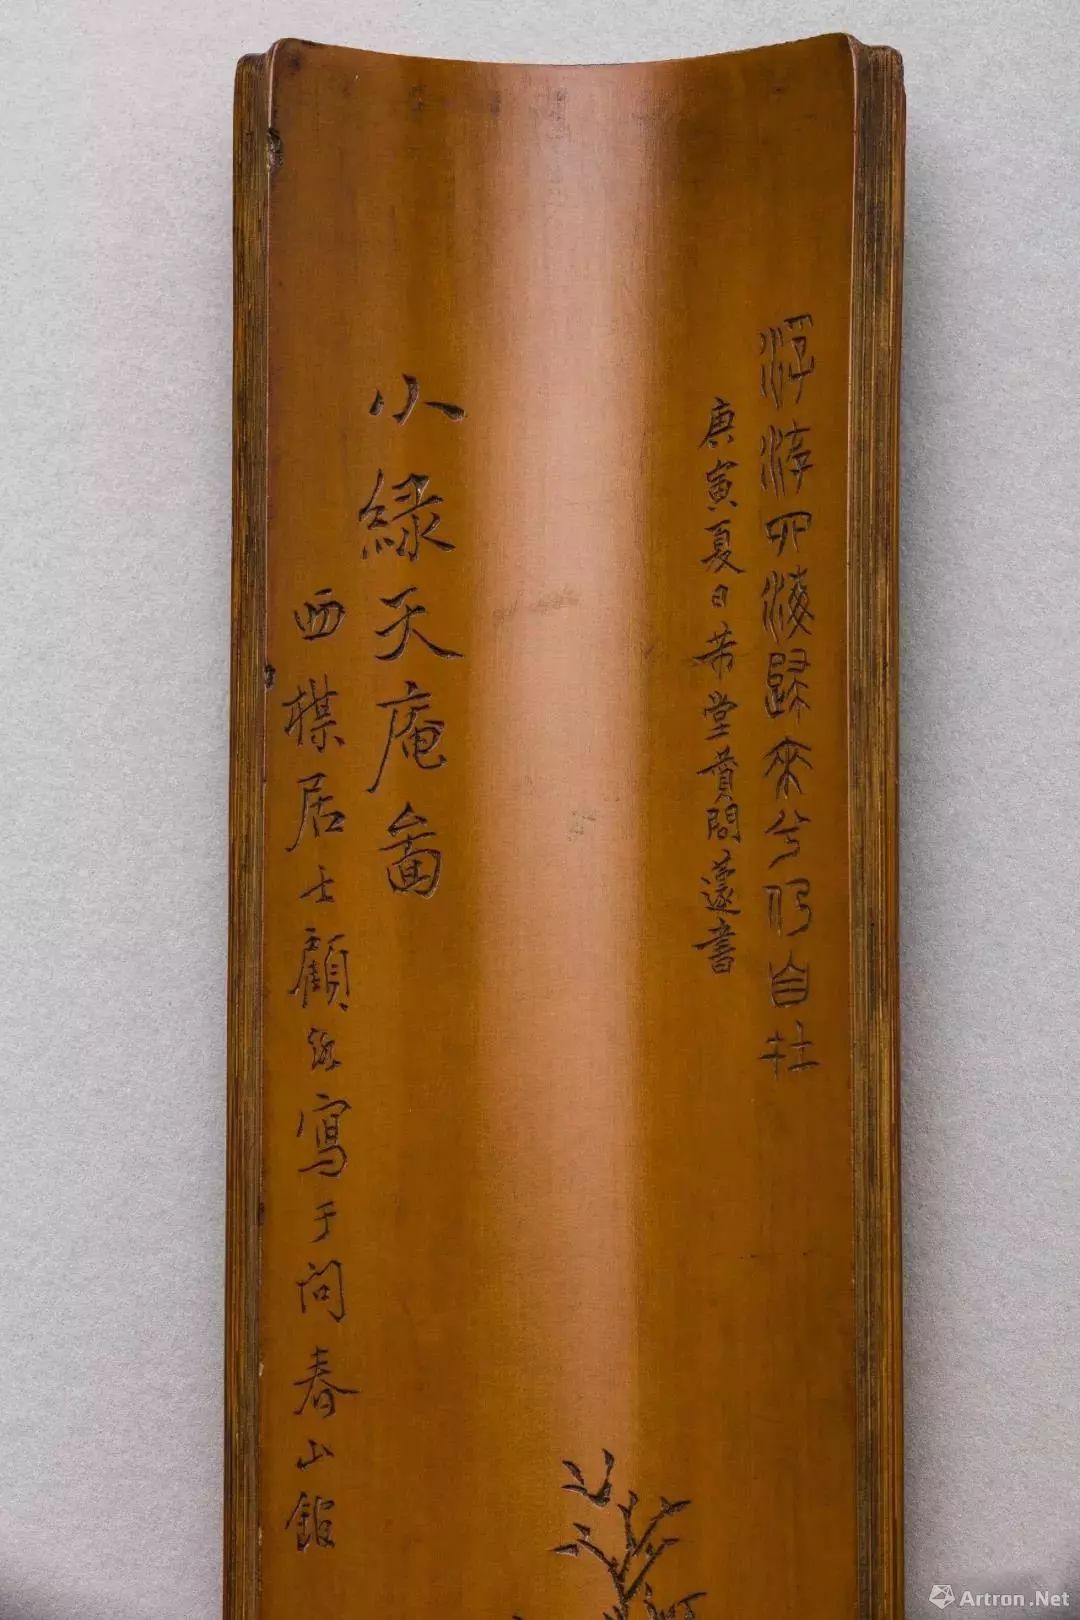 浮游四海歸來兮仍自在
庚寅夏日芾堂書
小綠天庵啚
西楳居士顧洛寫于問春山館
Artron.Net